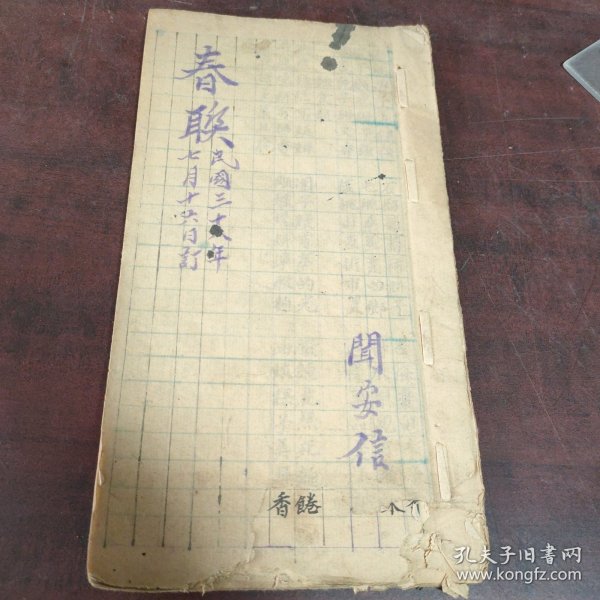 春联
民國三十八年
七月十六日訂
聞安信
香饒
孔夫子旧书网
www.kongfz.com